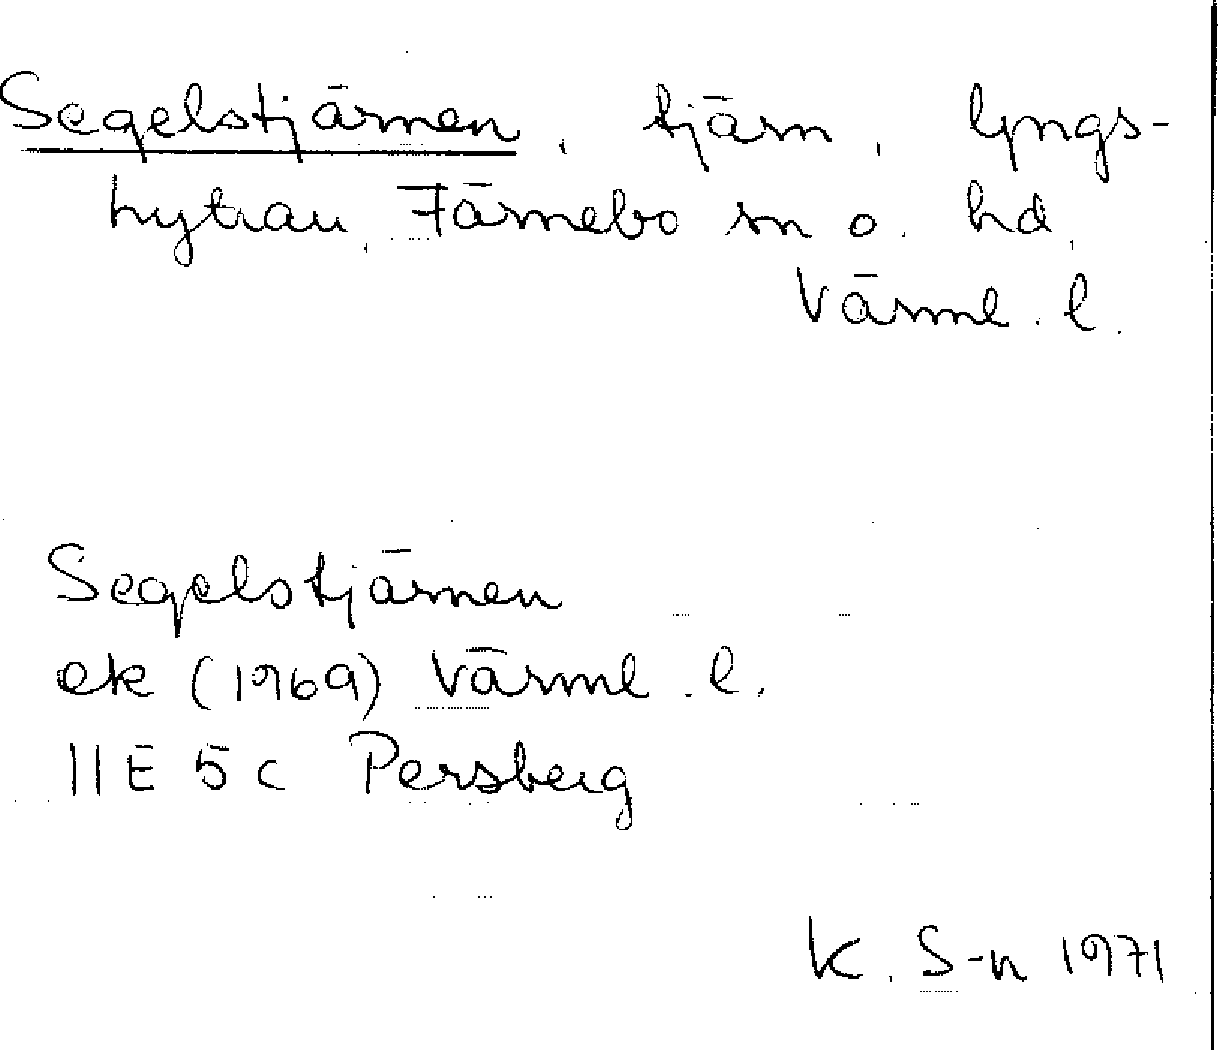 Segelstjärnen, tjärn, Lyngs-
hyttan, Färnebo sn o. hd,
Värml. l.
Segelstjärnen
ek (1969) Värml. l.
11E 5c Persberg
K. S-n 1971